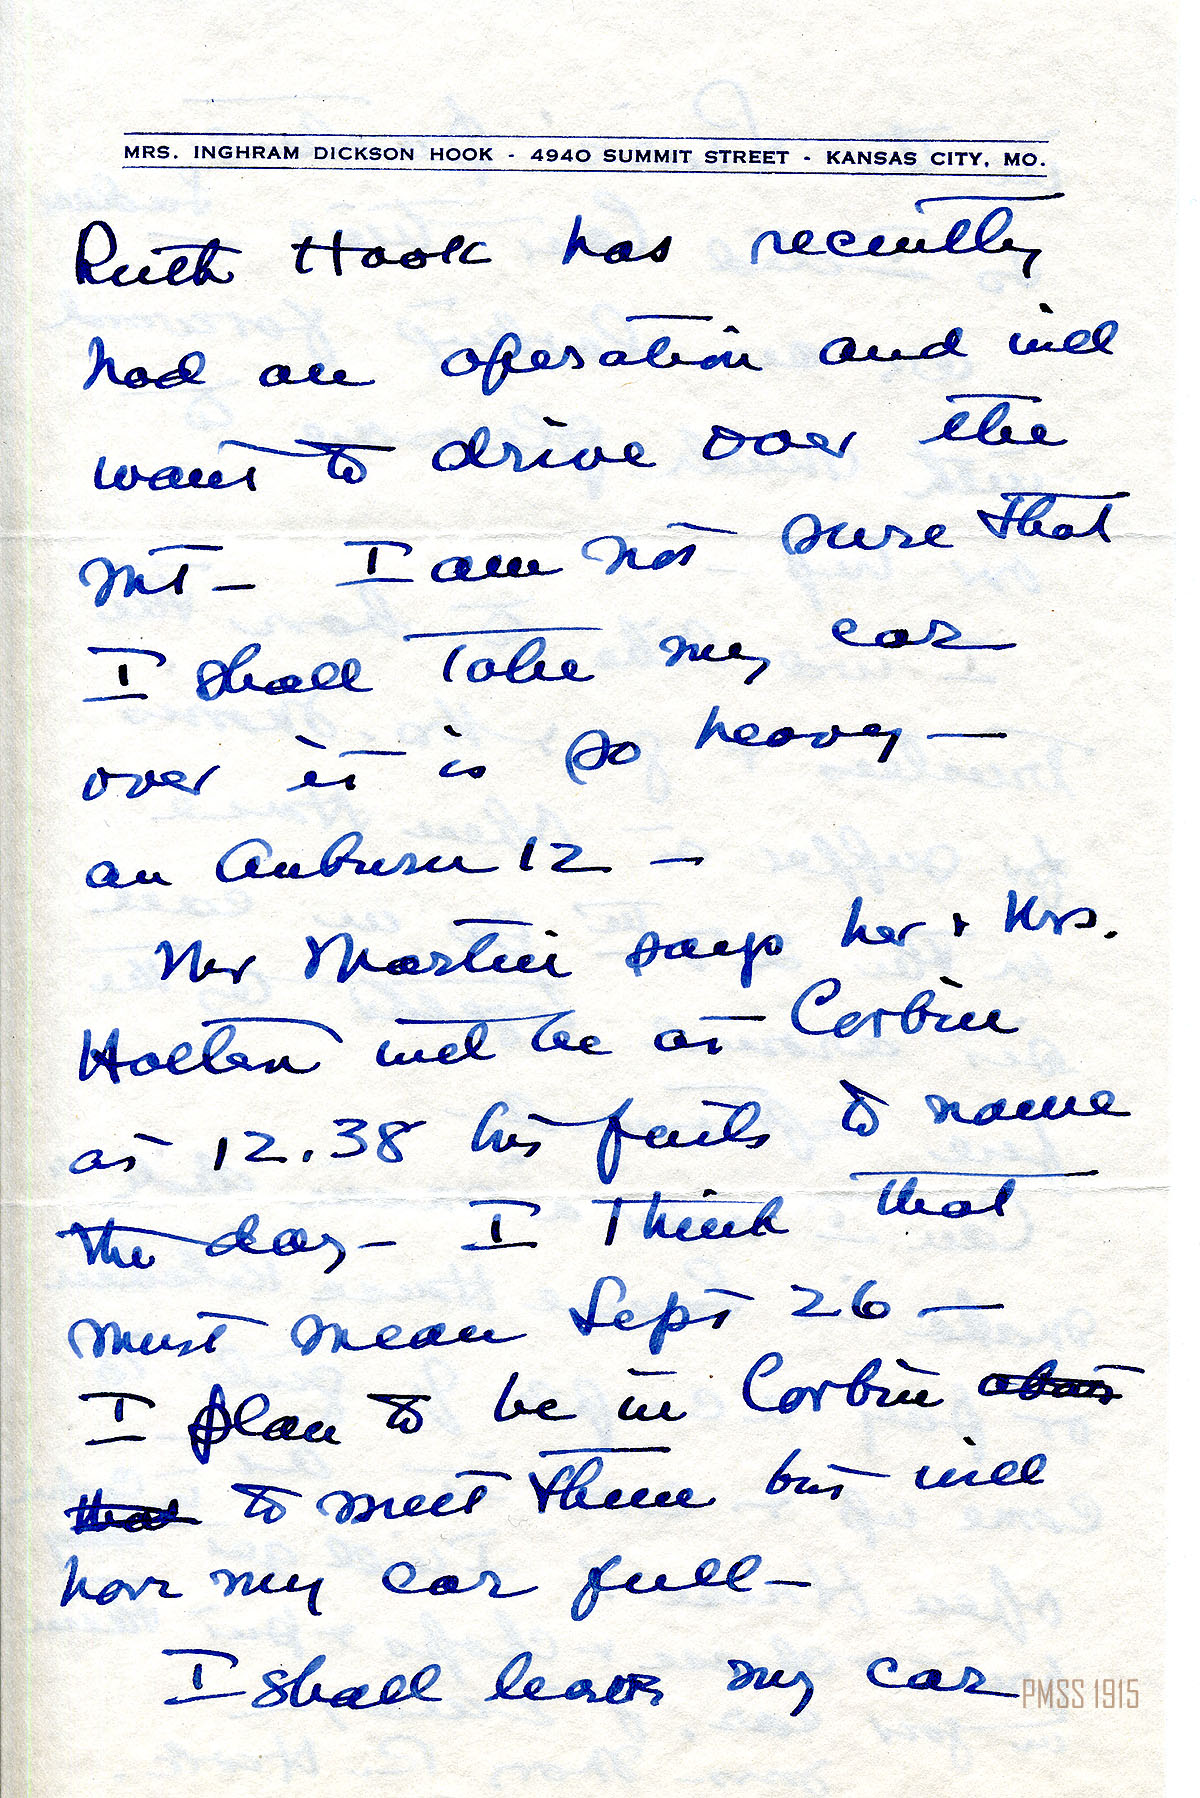 MRS. INGHRAM DICKSON HOOK - 4940 SUMMIT STREET - KANSAS CITY, MO.
Ruth Hook has recently
had an operation and will
want to drive over the
Mt - I am not sure that
I shall take my car
over it is so heavy -
an Auburn 12 -
Mr Martin says her + Mrs.
Holten will be at Corbin
at 12.38 but fails to name
the day - I think that
must mean Sept 26 -
I plan to be in Corbin about
that to meet them but will
have my car full -
I shall leave my car
PMSS 1915